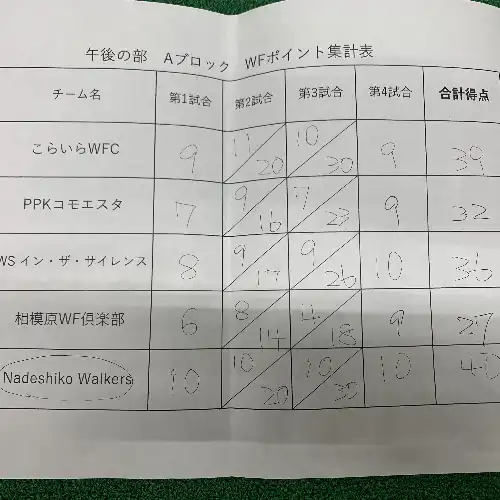 午後の部 Aブロック WFポイント集計表
チーム名 第1試合 第2試合 第3試合 第4試合 合計得点
こらいらWFC 9 11 20 10 30 9 39
PPKコモエスタ 7 9 16 7 23 9 32
WS イン・ザ・サイレンス 8 9 17 9 26 10 36
相模原WF倶楽部 6 8 14 4 18 9 27
Nadeshiko Walkers 10 10 20 10 30 10 40